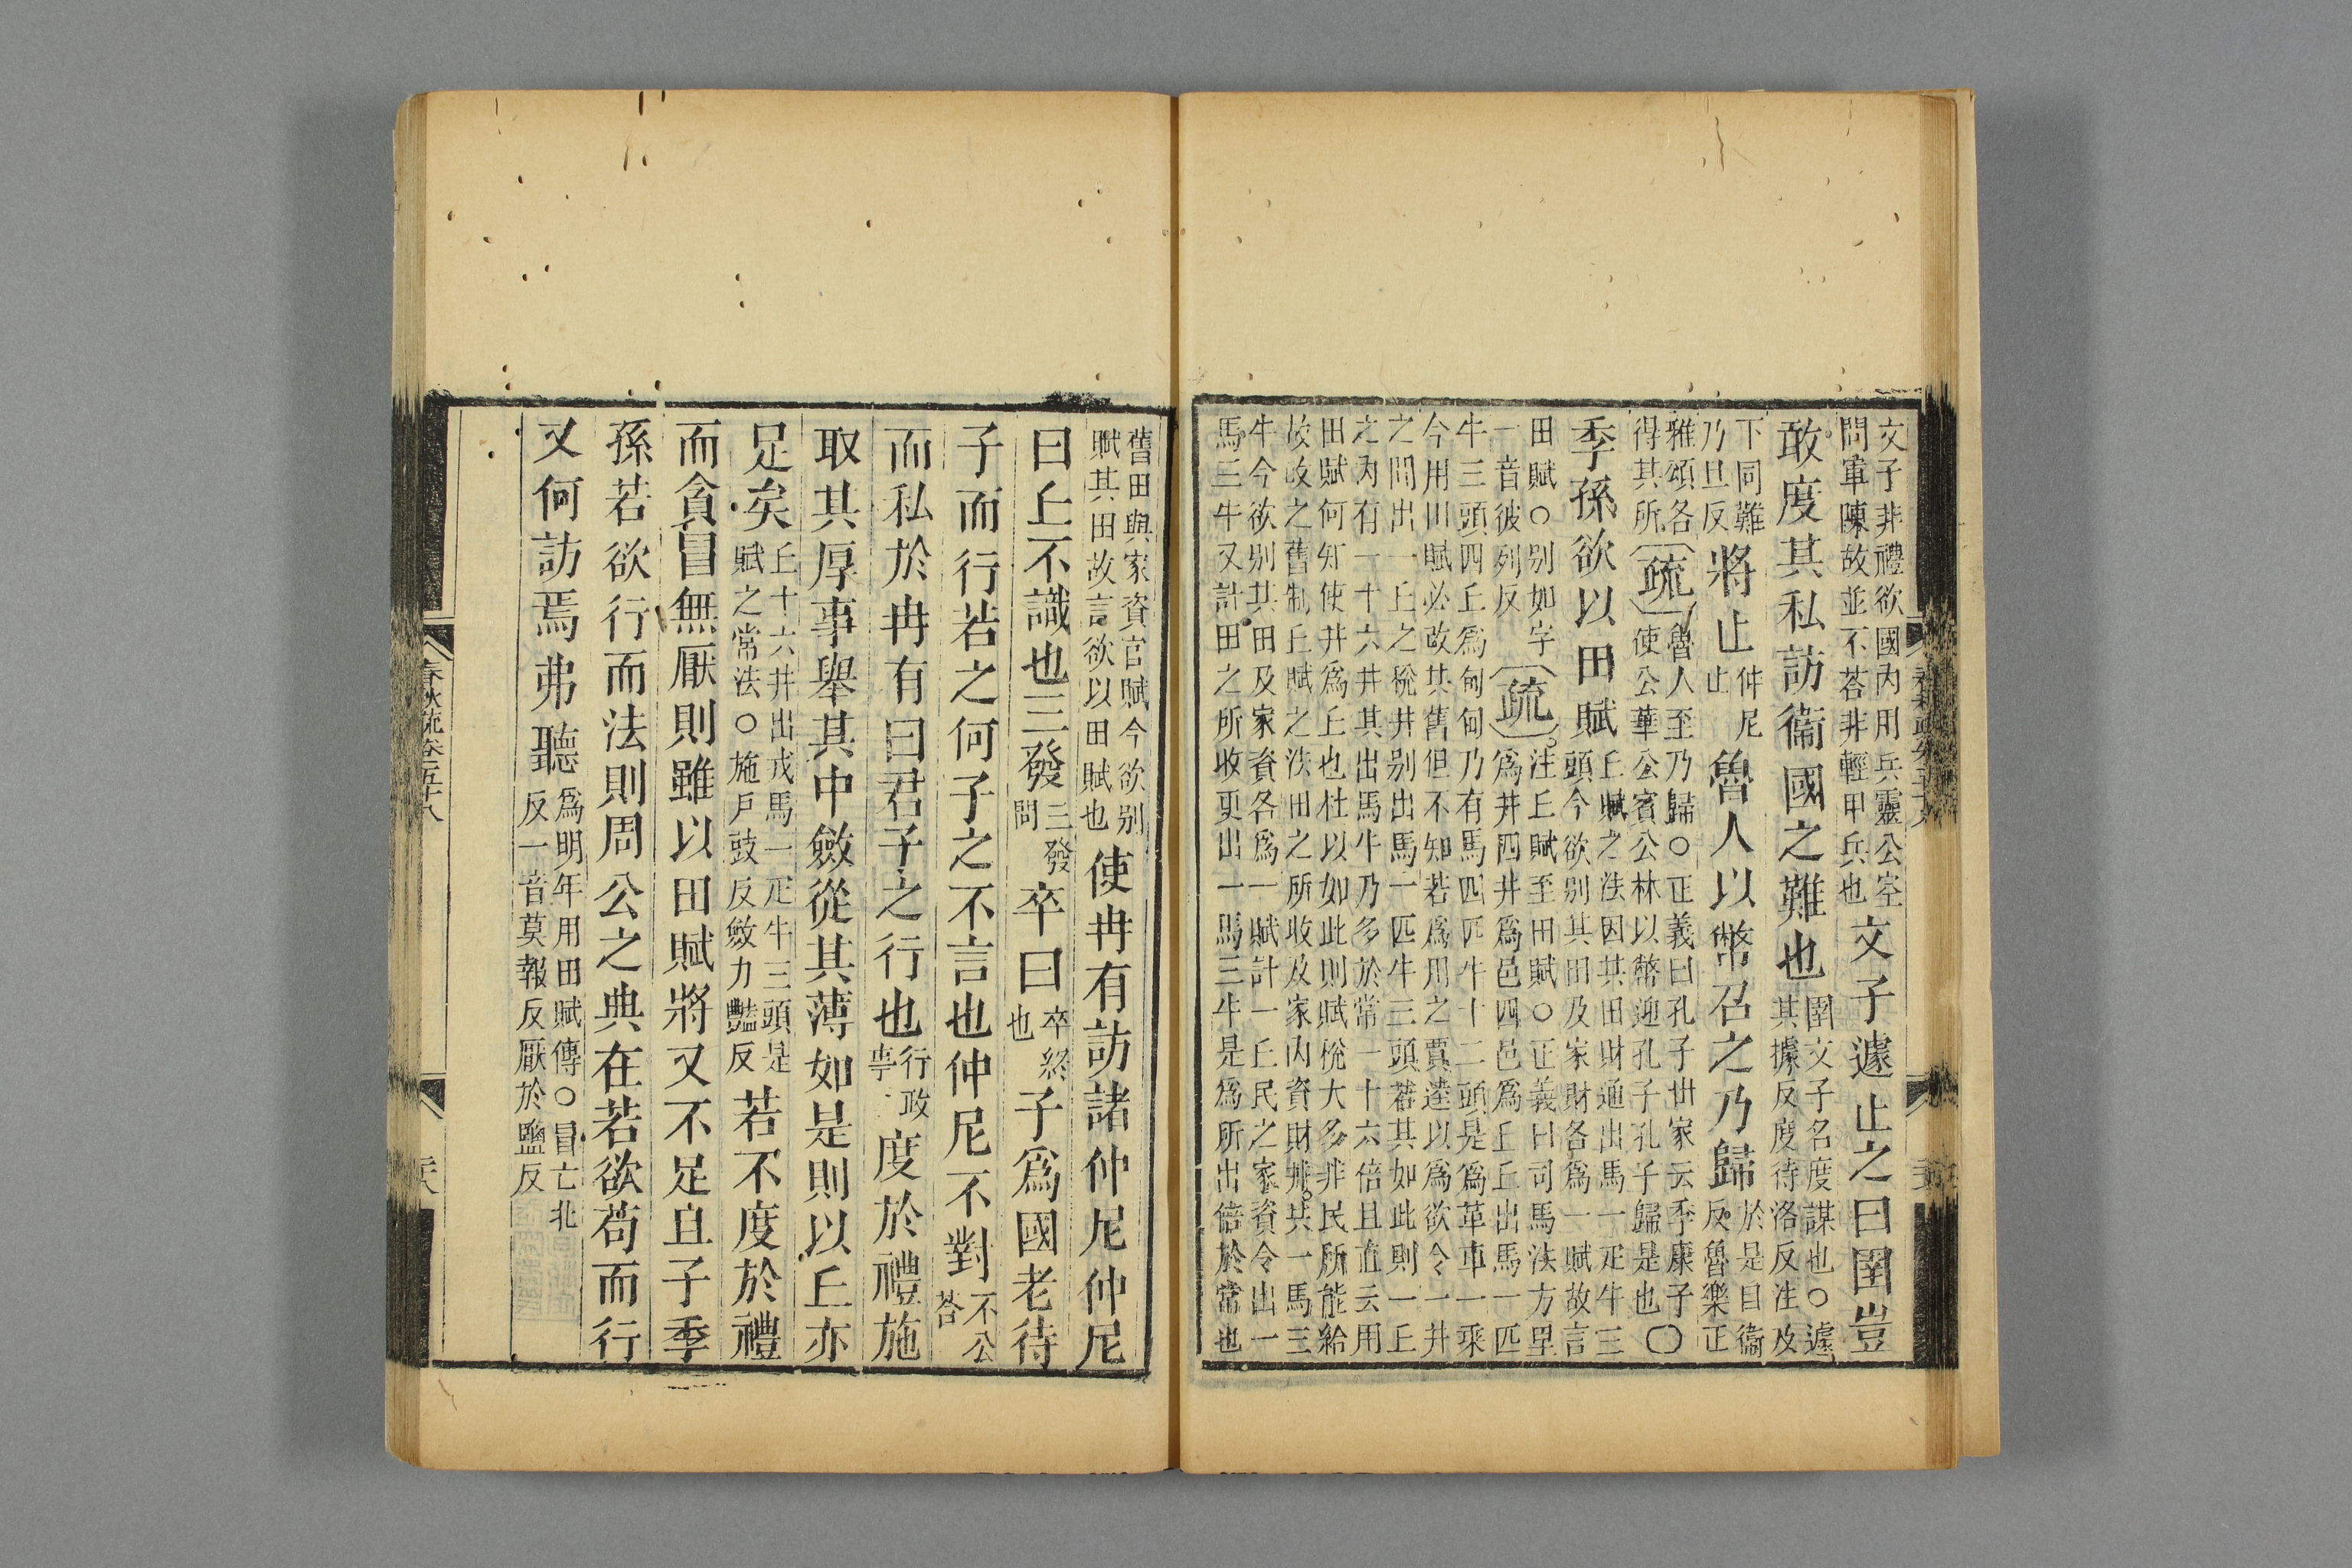 文子非禮欲國內用兵靈公空
問軍陳故並不荅非輕甲兵也
文子遽止之曰圉豈
敢度其私訪衞國之難也
圉文子名度謀也○遽
其據反度待洛反注及
下同難
乃旦反
將止
仲尼
止
魯人以幣召之乃歸
於是自衞
反魯樂正
雅頌各
得其所
疏
魯人至乃歸○正義曰孔子世家云季康子
使公華公賓公林以幣迎孔子孔子歸是也○
季孫欲以田賦
丘賦之法因其田財通出馬一疋牛三
頭今欲別其田及家財各爲一賦故言
田賦○別如字
一音彼列反
疏
注丘賦至田賦○正義曰司馬法方里
爲井四井爲邑四邑爲丘丘出馬一匹
牛三頭四丘爲甸甸乃有馬四匹牛十二頭是爲革車一乘
今用田賦必改其舊但不知若爲用之賈逵以爲欲令一井
之間出一丘之稅井別出馬一匹牛三頭若其如此則一丘
之內有一十六井其出馬牛乃多於常一十六倍且直云用
田賦何知使井爲丘也杜以如此則賦稅大多非民所能給
故改之舊制丘賦之法田之所收及家內資財井共一馬三
牛今欲別其田及家資各爲一賦計一丘民之家資令出一
馬三牛又計田之所收更出一馬三牛是爲所出倍於常也
舊田與家資官賦今欲別
賦其田故言欲以田賦也
使冉有訪諸仲尼仲尼
曰丘不識也三發
三發
問
卒曰
卒終
也
子爲國老待
子而行若之何子之不言也仲尼不對
不公
荅
而私於冉有曰君子之行也
行政
事
度於禮施
取其厚事舉其中斂從其薄如是則以丘亦
足矣
丘十六井出戎馬一疋牛三頭是
賦之常法○施戸豉反斂力豔反
若不度於禮
而貪冒無厭則雖以田賦將又不足且子季
孫若欲行而法則周公之典在若欲苟而行
又何訪焉弗聽
爲明年用田賦傳○冒亡北
反一音莫報反厭於鹽反
春秋疏卷五十八